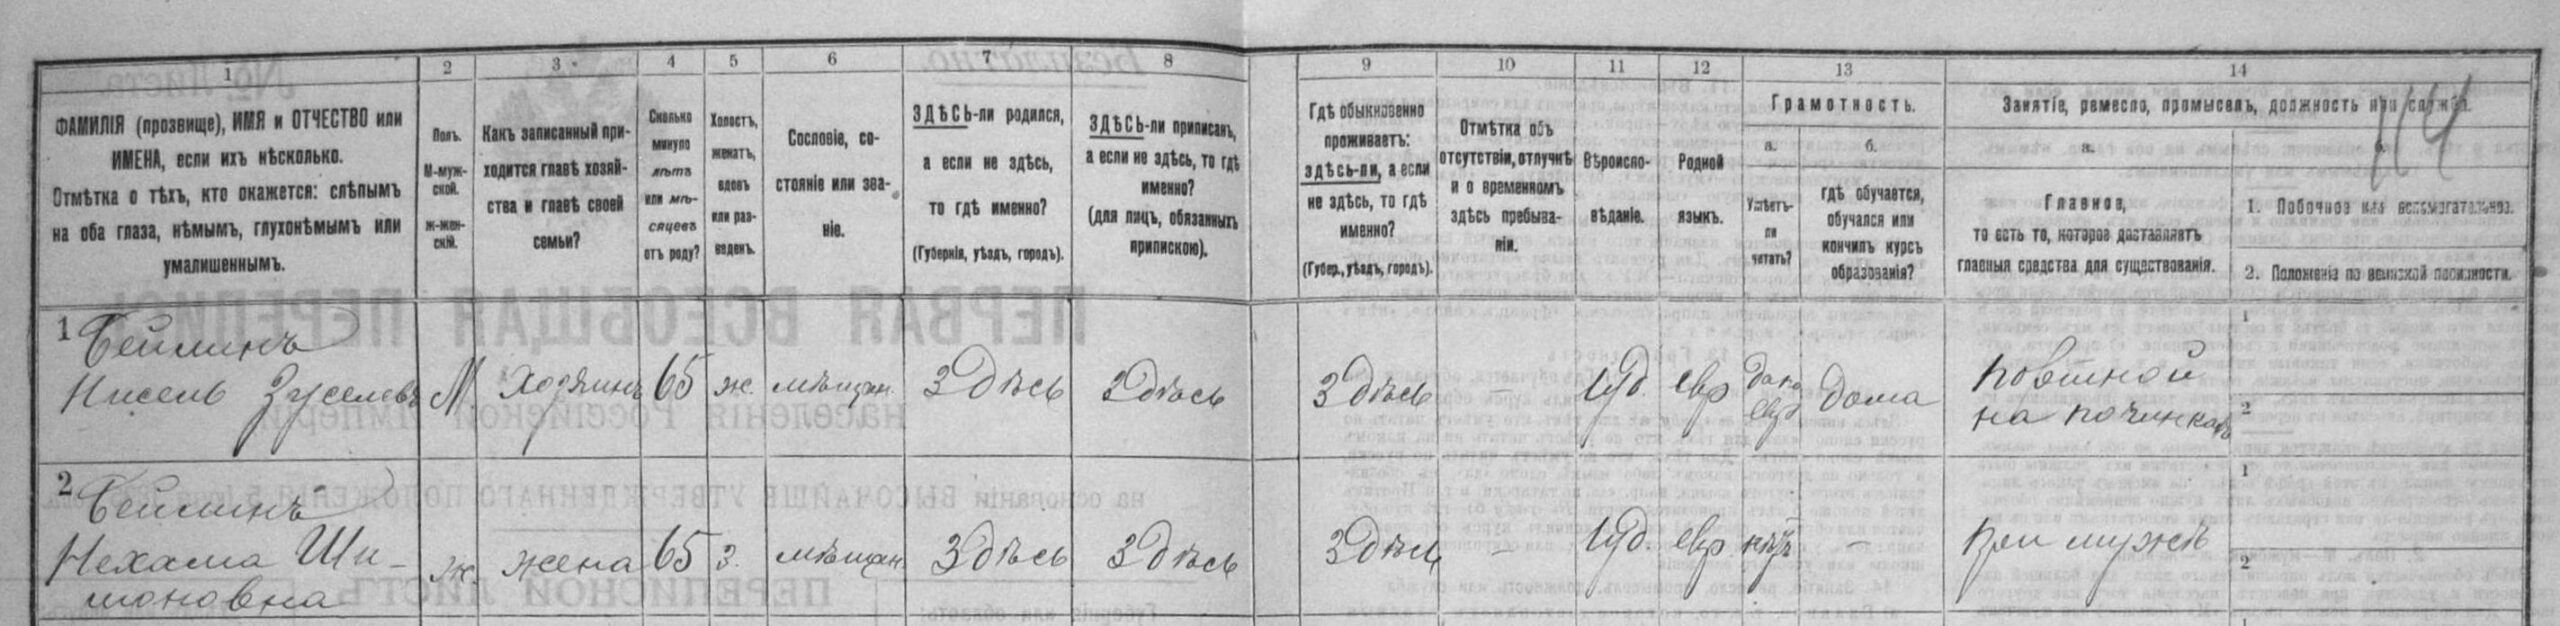 1
2
3
4
5
6
7
8
9
10
11
12
13
14
ФАМИЛІЯ (прозвище), ИМЯ и ОТЧЕСТВО или
ИМЕНА, если ихъ нѣсколько.
Отмѣтка о тѣхъ, кто окажется: слѣпымъ
на оба глаза, нѣмымъ, глухонѣмымъ или
умалишеннымъ.
Полъ.
М-муж-
ской.
ж-жен-
скій.
Какъ записанный при-
ходится главѣ хозяй-
ства и главѣ своей
семьи?
Сколько
минуло
лѣтъ
или мѣ-
сяцевъ
отъ роду?
Холостъ,
женатъ,
вдовъ
или раз-
веденъ.
Сословіе, со-
стояніе или зва-
ніе.
ЗДѢСЬ-ли родился,
а если не здѣсь,
то гдѣ именно?
(Губернія, уѣздъ, городъ).
ЗДѢСЬ-ли приписанъ,
а если не здѣсь, то гдѣ
именно?
(для лицъ, обязанныхъ
припискою).
Гдѣ обыкновенно
проживаетъ:
здѣсь-ли, а если
не здѣсь, то гдѣ
именно?
(Губер., уѣздъ, городъ).
Отмѣтка объ
отсутствіи, отлучкѣ
и о временномъ
здѣсь пребыва-
ніи.
Вѣроиспо-
вѣданіе.
Родной
языкъ.
Грамотность.
а.
Умѣетъ-
ли
читать?
б.
гдѣ обучается,
обучался или
кончилъ курсъ
образованія?
Занятіе, ремесло, промыселъ, должность или служба.
114
а.
Главное,
то есть то, которое доставляетъ
главныя средства для существованія.
1. Побочное или вспомогательное.
2. Положеніе по воинской повинности.
1 Бейлинъ
Нисель Зуселевъ
М
хозяинъ
65
ж.
мѣщан.
Здѣсь
Здѣсь
Здѣсь
–
Іуд.
евр
евр
дома
на починкахъ
1
2
2 Бейлинъ
Нехама Ши-
моновна
ж.
жена
65
з.
мѣщан
Здѣсь
Здѣсь
Здѣсь
–
Іуд.
евр
нѣтъ
–
при мужѣ
1
2